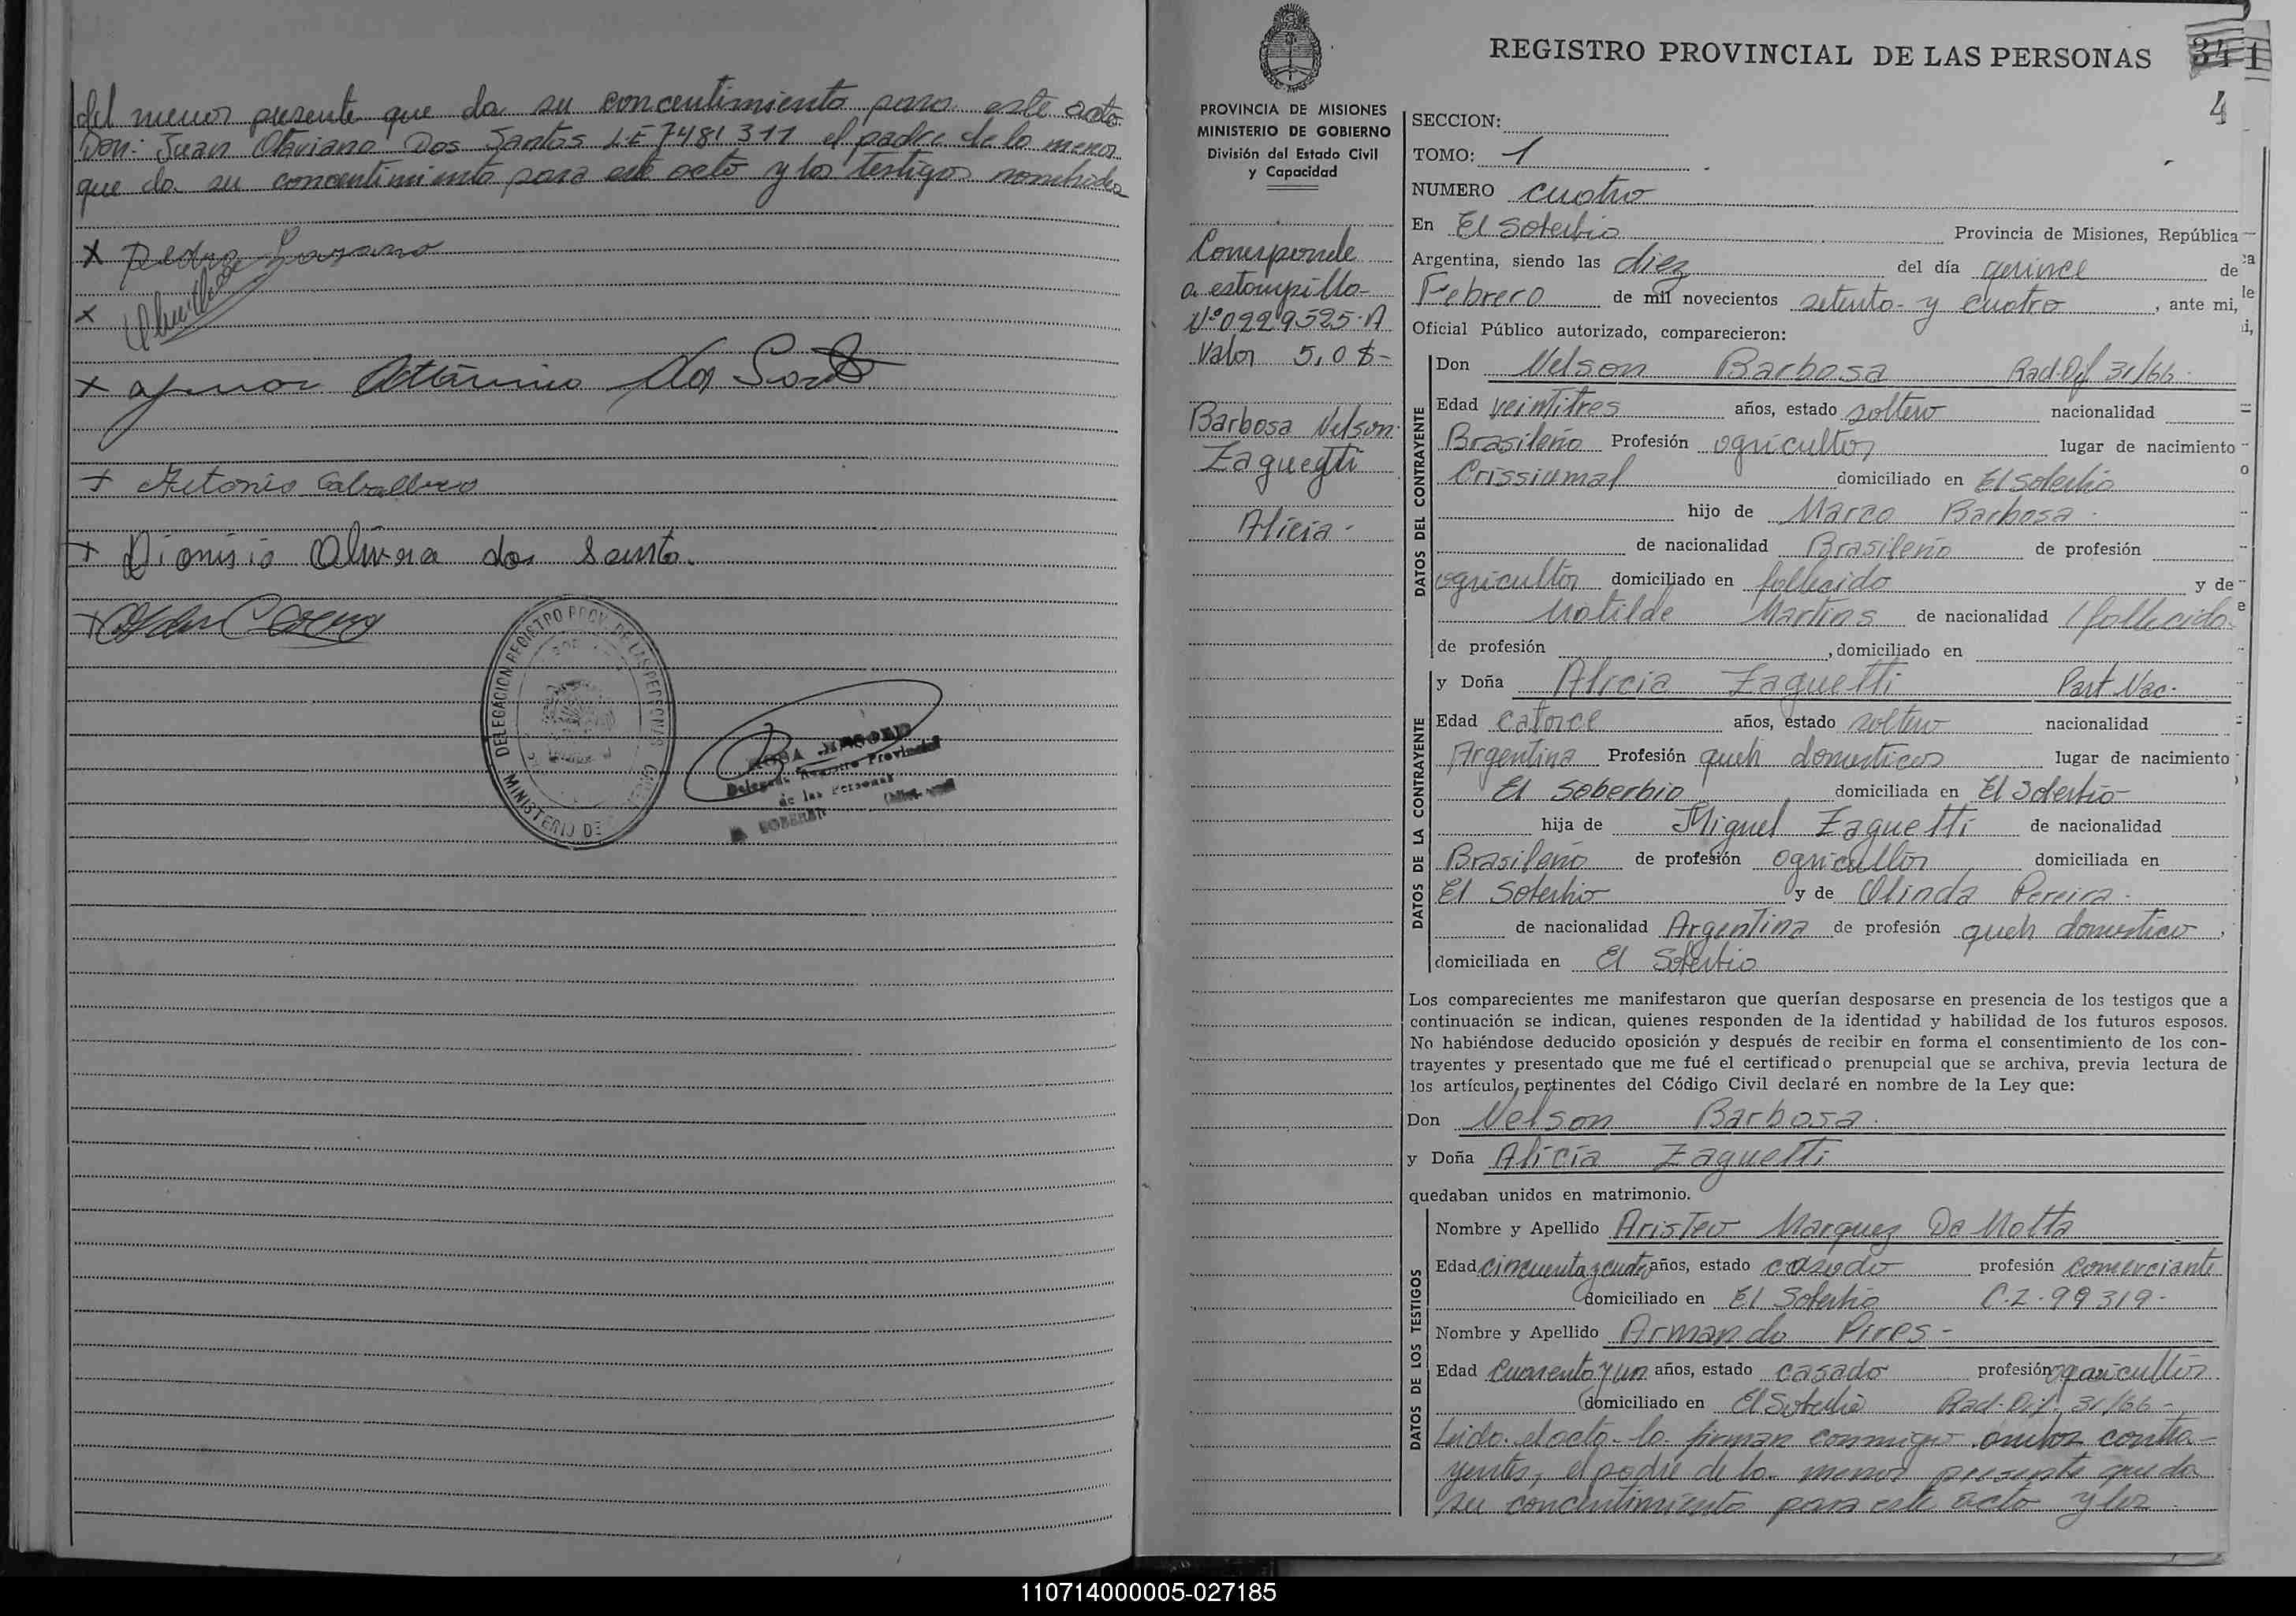 del menor presente que da su concentimiento para este acto
Don: Juan Otaviano Dos Santos LE 7481311 el padre de la menor
que da su concentimiento para este acto y los testigos nombrados
X Pedro
X
X Ottavino dos Santo
+ Antonio Caballero
+ Dionisio Olivera dos Santo.
+
DELEGACION REGISTRO PROV. DE LAS PERSONAS
MINISTERIO DE
Delegada Registro Provincial
de las Personas
SOBERBIO
PROVINCIA DE MISIONES
MINISTERIO DE GOBIERNO
División del Estado Civil
y Capacidad
Corresponde
a estampilla
Nº 0229525-A
Valor 5,0 $-
Barbosa Nelson
Zaguetti
Alicia-
REGISTRO PROVINCIAL DE LAS PERSONAS
341
4
SECCION:
TOMO: 1
NUMERO cuatro
En El Soberbio Provincia de Misiones, República
Argentina, siendo las diez del día quince de
Febrero de mil novecientos setenta y cuatro, ante mi,
Oficial Público autorizado, comparecieron:
DATOS DEL CONTRAYENTE
Don Nelson Barbosa Rad.Dif 31/66.
Edad veintitres años, estado soltero nacionalidad
Brasileño Profesión agricultor lugar de nacimiento
Crissiumal domiciliado en El Soberbio
hijo de Marco Barbosa.
de nacionalidad Brasileño de profesión
agricultor domiciliado en fallecido y de
Matilde Martins de nacionalidad fallecida
de profesión , domiciliado en
DATOS DE LA CONTRAYENTE
y Doña Alicia Zaguetti Part Nac.
Edad catorce años, estado soltera nacionalidad
Argentina Profesión queh domesticos lugar de nacimiento
El Soberbio domiciliada en El Soberbio
hija de Miguel Zaguetti de nacionalidad
Brasileño de profesión agricultor domiciliada en
El Soberbio y de Olinda Pereira.
de nacionalidad Argentina de profesión queh domestico,
domiciliada en El Soberbio
Los comparecientes me manifestaron que querían desposarse en presencia de los testigos que a
continuación se indican, quienes responden de la identidad y habilidad de los futuros esposos.
No habiéndose deducido oposición y después de recibir en forma el consentimiento de los con-
trayentes y presentado que me fué el certificado prenupcial que se archiva, previa lectura de
los artículos, pertinentes del Código Civil declaré en nombre de la Ley que:
Don Nelson Barbosa.
y Doña Alicia Zaguetti
quedaban unidos en matrimonio.
DATOS DE LOS TESTIGOS
Nombre y Apellido Aristeo Marquez Da Motta
Edad cincuenta y cuatro años, estado casado profesión comerciante
domiciliado en El Soberbio C.I. 99319-
Nombre y Apellido Armando Pires -
Edad cuarenta y un años, estado casado profesión agricultor
domiciliado en El Soberbio Rad. Dif. 31/66-
Leida el acta la firman conmigo ambos contra-
yentes, el padre de la menor presente que da
su concentimiento para este acto y los
110714000005-027185